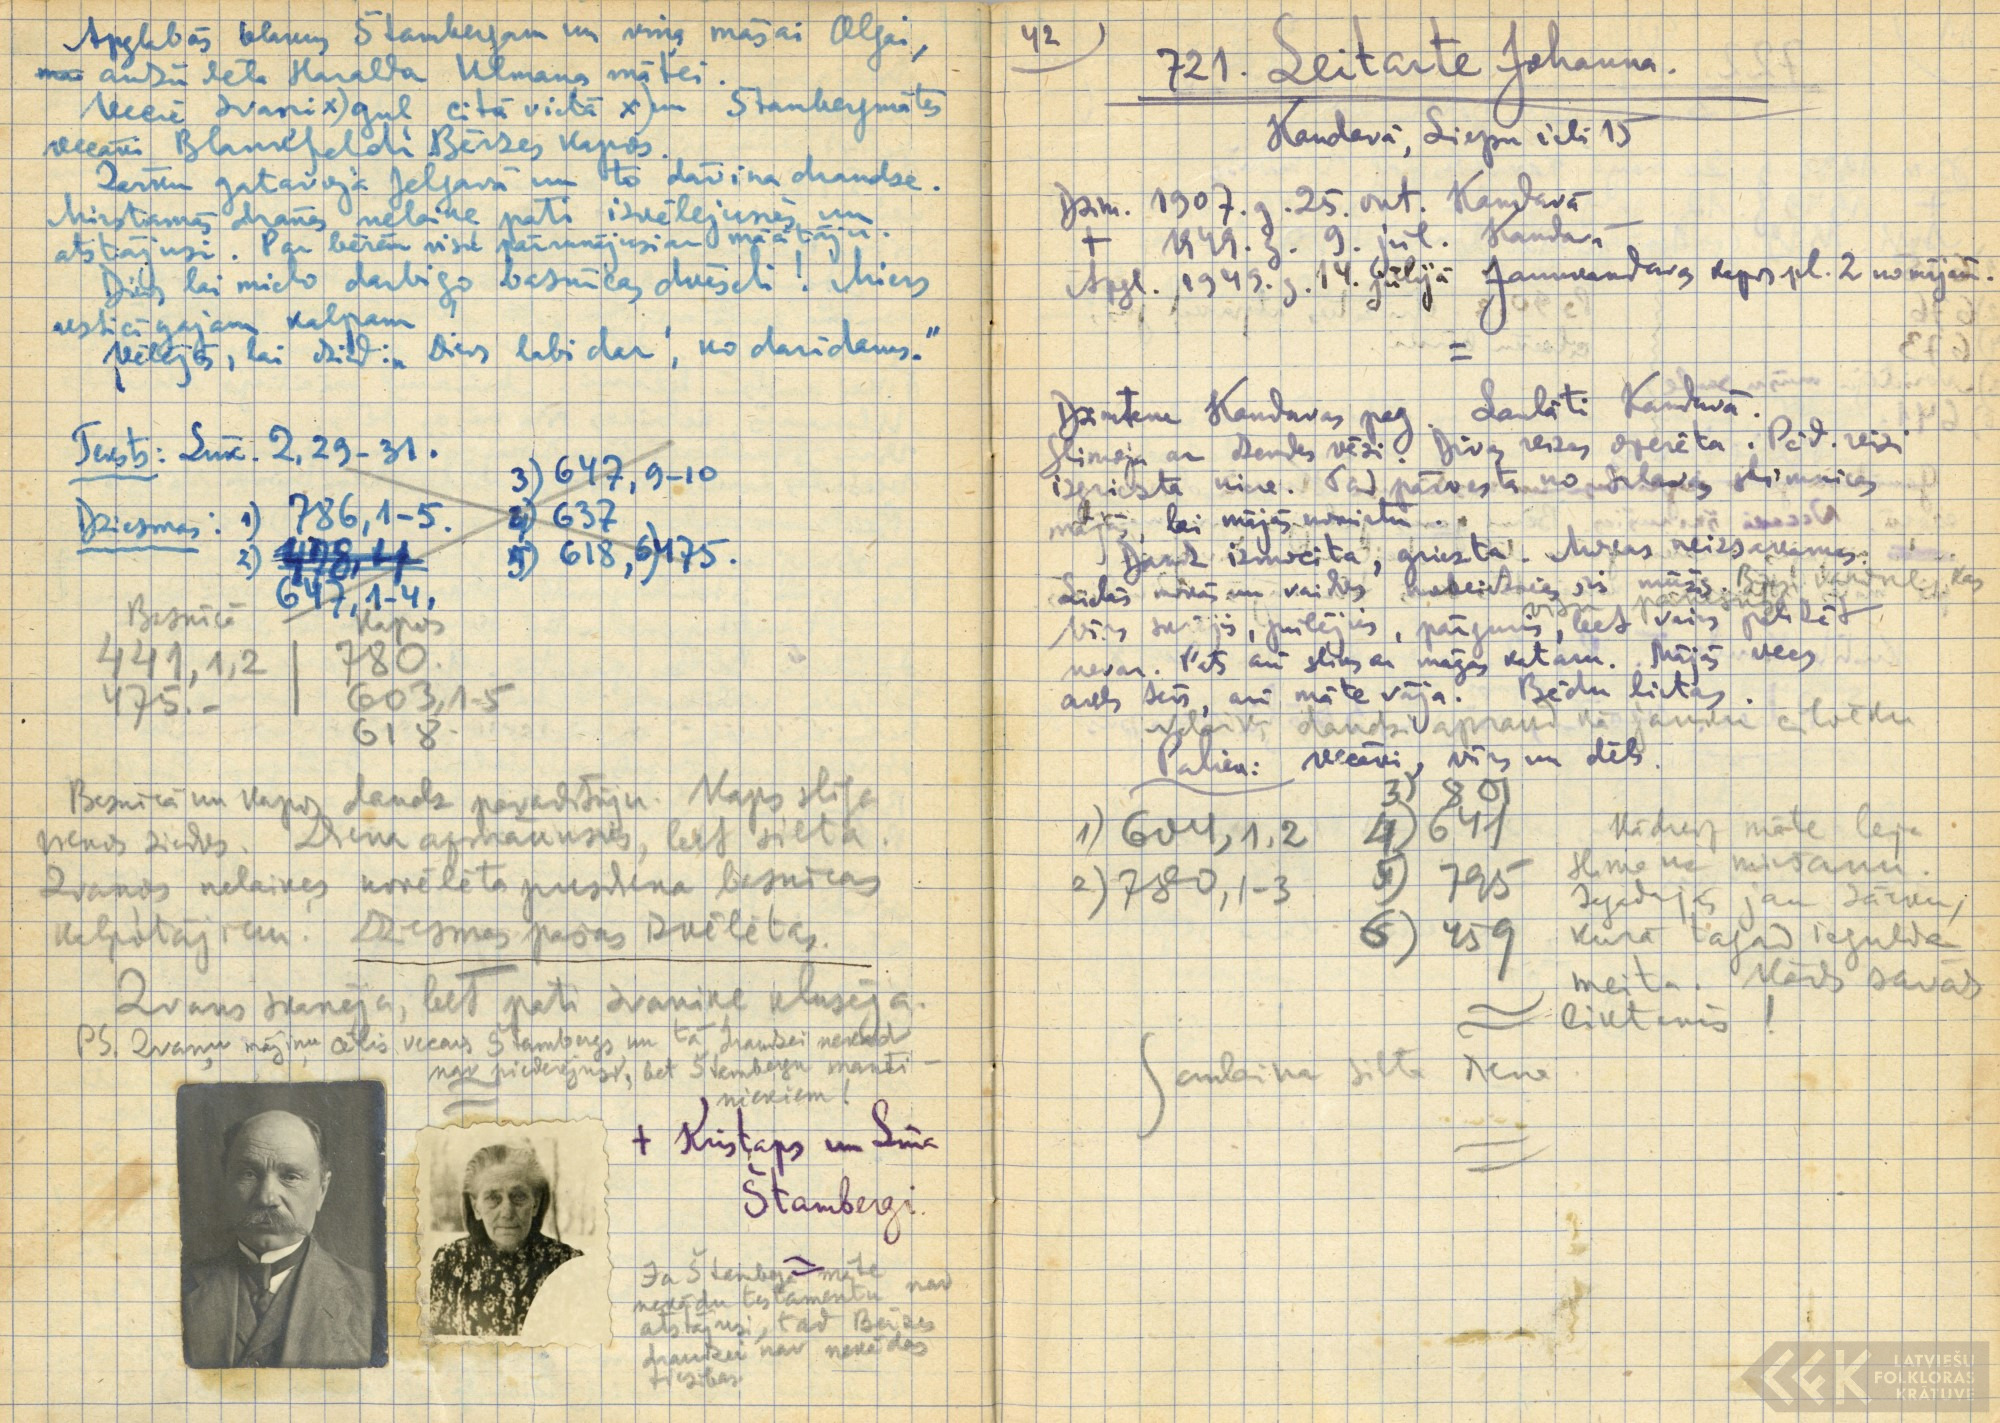 Apglabās blakus Štambergam un viņa māsai Olgai,
audžu tēta Haralda Ulmaņa mātei.
Vecie zvani x) guļ citā vietā x) un Štambergmātes
vecāki Blankfeldi Bērzes kapos.
Zārku gatavoja Jelgavā un to dāvina draudze.
Mirstamās drānas nelaiķe pati izvēlējusies un
atstājusi. Par bērēm visu pārrunājusi ar mācītāju.
Dievs lai mielo darbīgo baznīcas dvēseli! Miers
uzticīgajam kalpam!
Vēlējās, lai dzied: "Dievs labi dar', ko darīdams."
Teksts: Lūk. 2, 29-31.
Dziesmas: 1) 786, 1-5.
2) 478, 11
647, 1-4,
3) 647, 9-10
4) 637
5) 618, 6) 475.
Baznīcā
441, 1,2
475.-
Kapos
780.
603, 1-5
618.
Baznīcā un kapos daudz pavadītāju. Kaps slīga
vienos ziedos. Diena apmākusies, bet silta.
Zvanos nelaiķes novēlēta pusdiena baznīcas
kalpotājiem. Dziesmas pašas izvēlētas.
Zvans skanēja, bet pati zvaniķe klusēja.
PS. Zvanu mājiņu cēlis vecais Štambergs un tā draudzei nekad
nav piederējusi, bet Štambergu manti-
niekiem!
+ Kristaps un Līna
Štambergi.
Ja Štamberga māte
nekādu testamentu nav
atstājusi, tad Bērzes
draudzei nav nekādas
tiesības
42)
721. Leitarte Johanna.
Kandavā, Liepu ielā 15
Dzim. 1907. g. 25. okt. Kandavā
+ 1949. g. 9. jūl. Kandavā
Apgl. 1949. g. 14. jūlijā Jaunkandavas kapos pl. 2 no mājām.
=
Dzimtene Kandavas pag. Laulāti Kandavā.
Slimoja ar dzemdes vēzi. Divas reizes operēta. Pēd. reizi
izgriezta niere. Tad pārvesta no slimnīcas
mājās, lai mājās nomirtu.
Daudz izmocīta, griezta. Mokas neizsakāmas.
Lielās mokās un vaidos noslēdzies šis mūžs.
Vīrs skrējis, pūlējies, pārguris, bet vairs palīdzēt
nevar. Pats arī slims ar māgas kataru. Mājās vecs
akls tēvs, arī māte vāja. Bēdu lietas.
Palika: vecāki, vīrs un dēls.
1) 604, 1,2
2) 780, 1-3
3) 801
4) 641
5) 795
6) 459
Kādreiz māte bija
slima uz miršanu.
Iegādājās jau zārku,
kurā tagad iegulda
meita. Kāds savāds
liktenis!
Saulaina silta diena
LATVIEŠU
FOLKLORAS
KRĀTUVE